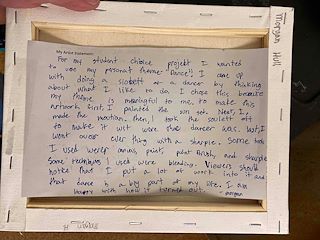 My Artist Statement:
For my student choice project I wanted
to use my personal theme "Dance"! I came up
with doing a sloett of a dancer by thinking
about what I like to do. I chose this because
my theme is meaningful to me. to make this
artwork first, I painted the sun set. Next, I
made the mountion. then, I took the soulett off
to make it wite were the dancer was. last, I
went over ever thing with a sharpie. Some tools
I used were: canvas, paint, paint brush, and sharpie
Some techniques I used were blending. Viewers should
notice that I put a lot of work into it and
that dance is a big part of my life. I am
happy with how it turned out. -morgan
Morgan Hull